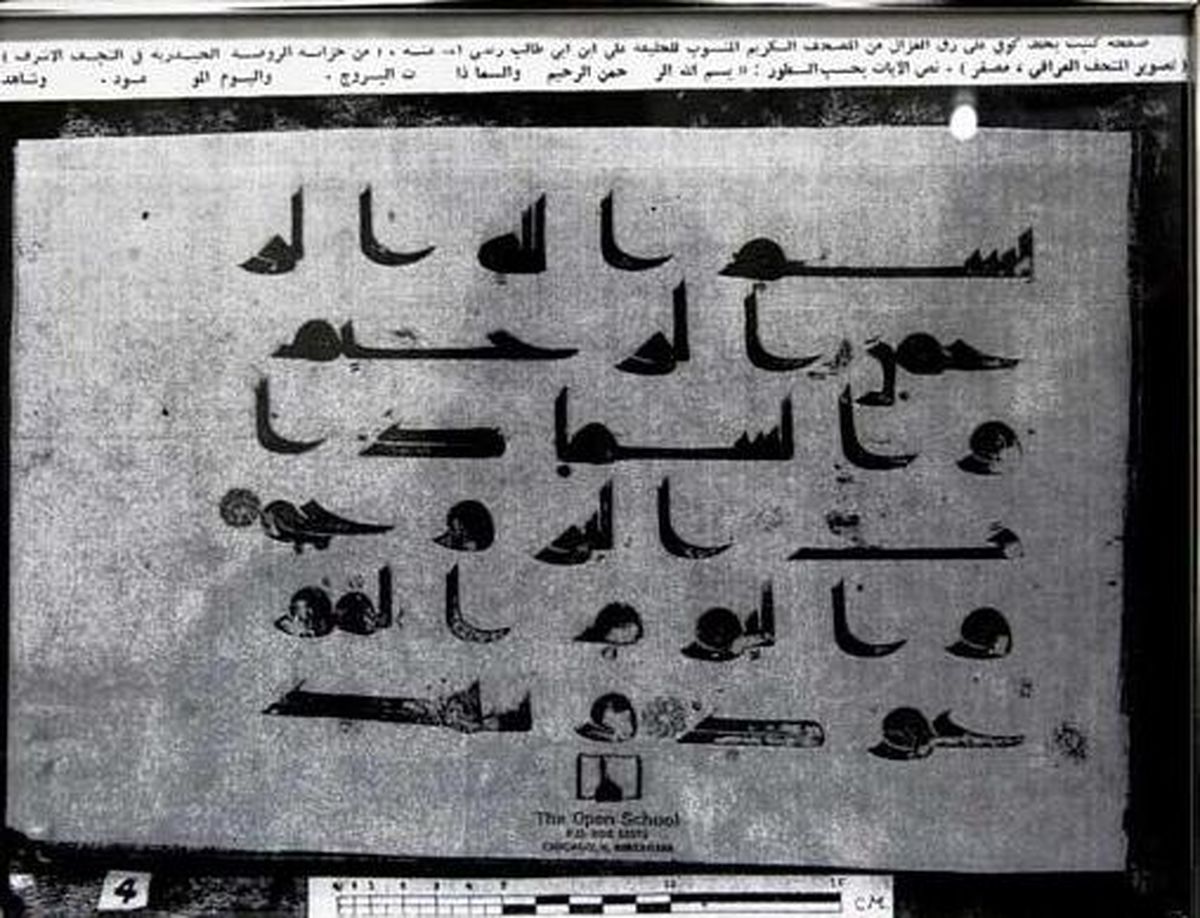 صفحة كتبت بخط كوفي على رق الغزال من المصحف الكريم المنسوب للخليفة علي ابن ابي طالب رضي الله عنه ، من خزانة الروضة الحيدرية في النجف الاشرف (
( تصوير المتحف العراقي ، مصغر ) . نص الآيات بحسب السطور : « بسم الله الر حمن الرحيم والسما ذا ت البروج . واليوم المو عود . وشاهد
بسم الله الر
حمن الرحيم
والسما ذا
ت البروج
واليوم المو
عود وشاهد
The Open School
P.O. BOX
CHICAGO, IL
4
10 15 CM